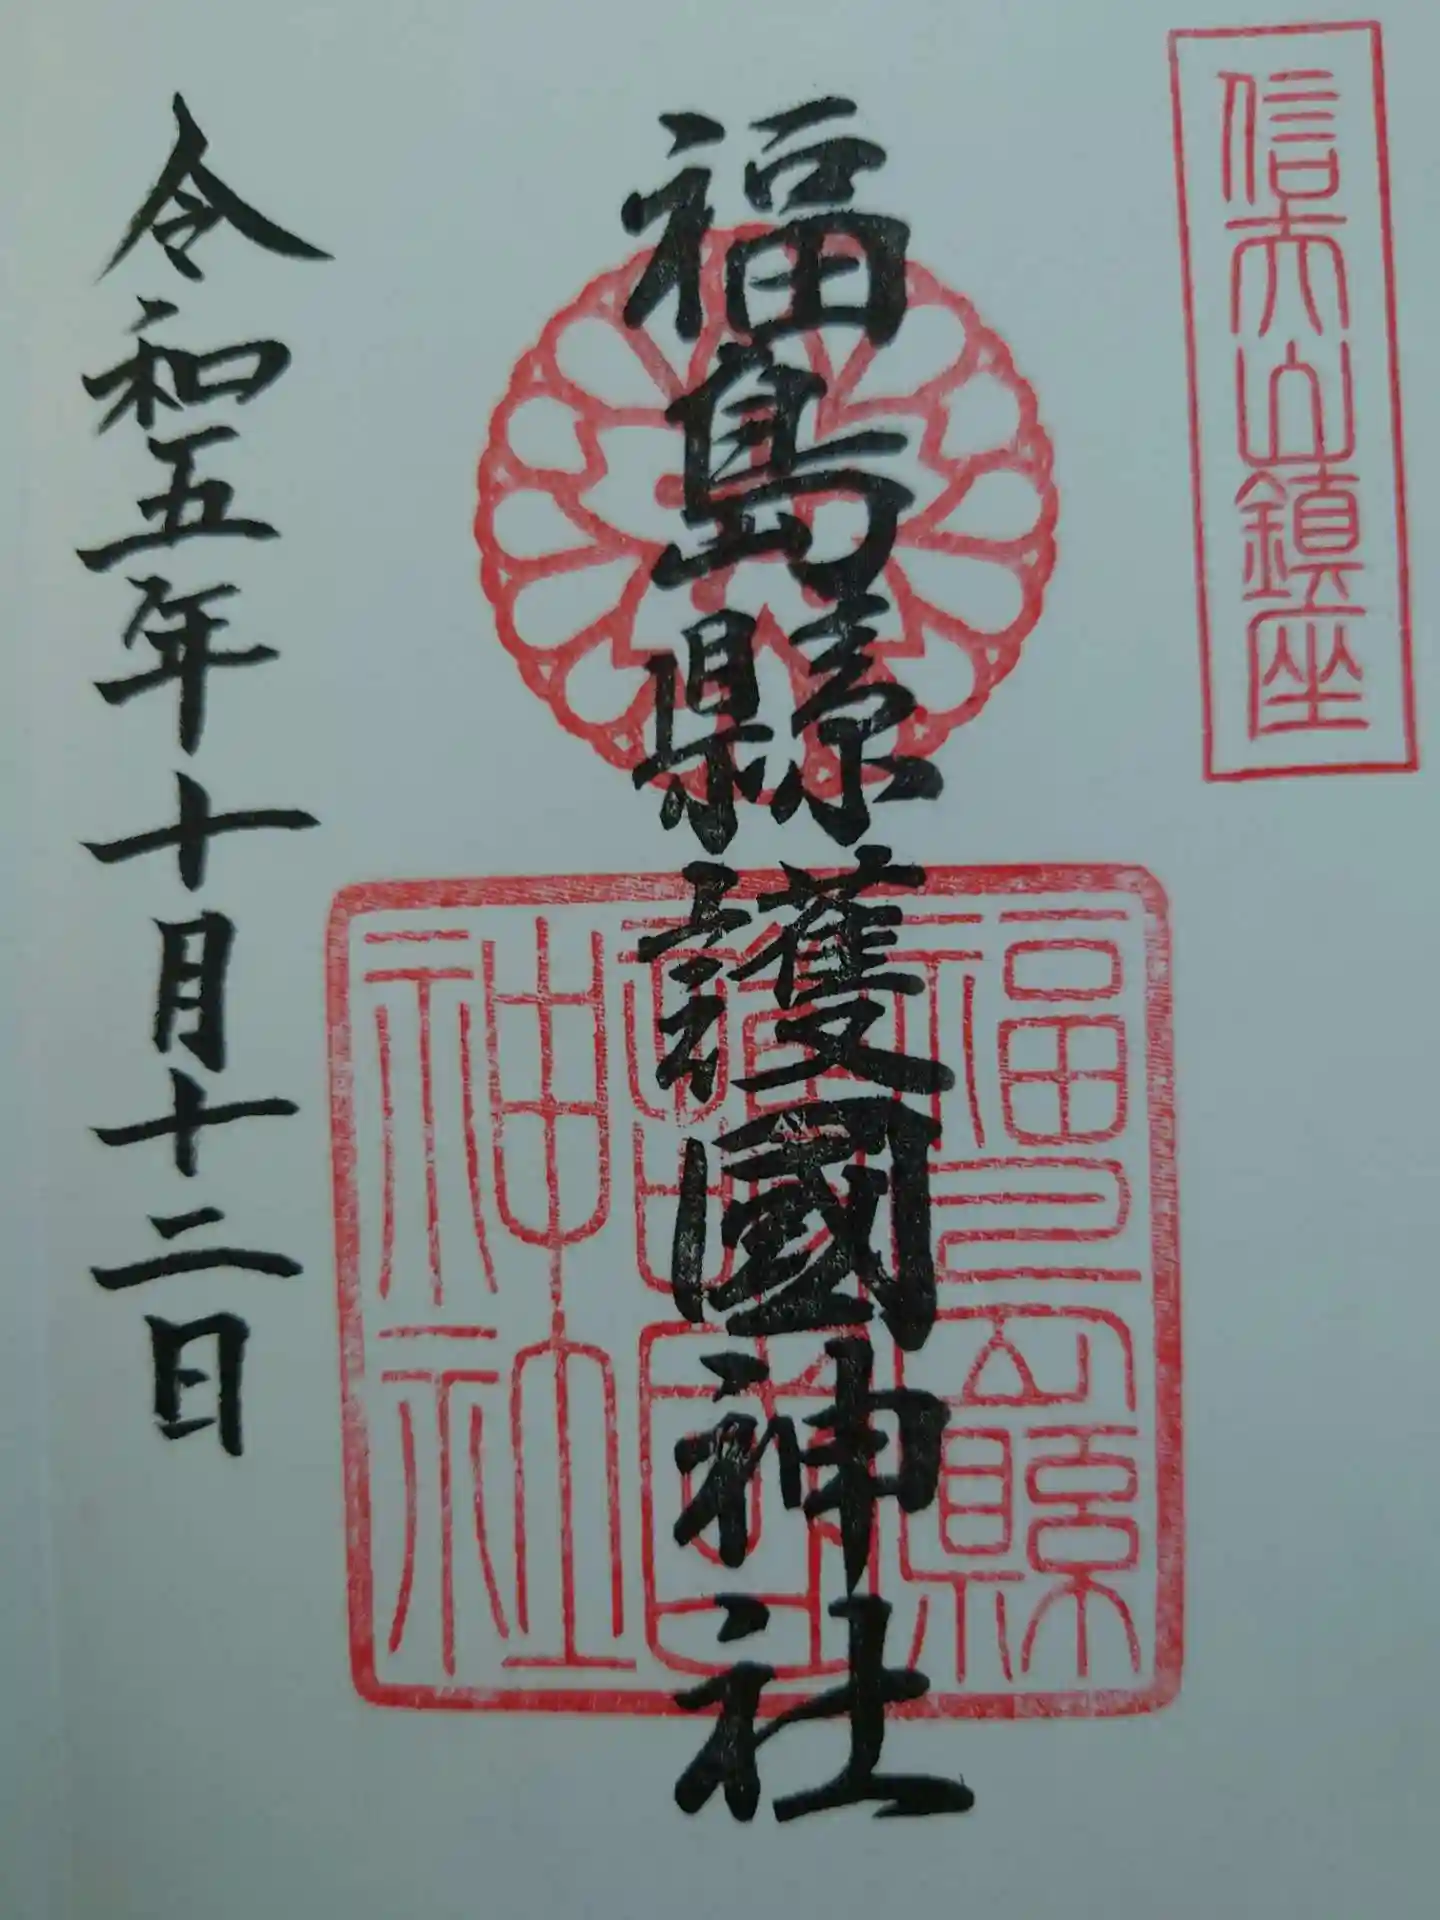 信夫山鎮座
福島縣護國神社
福島縣護國神社
令和五年十月十二日